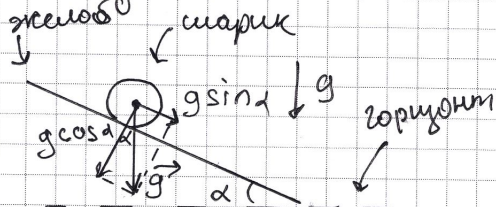 желоб
шарик
g sinα
g
горизонт
g cosα
α
g
α